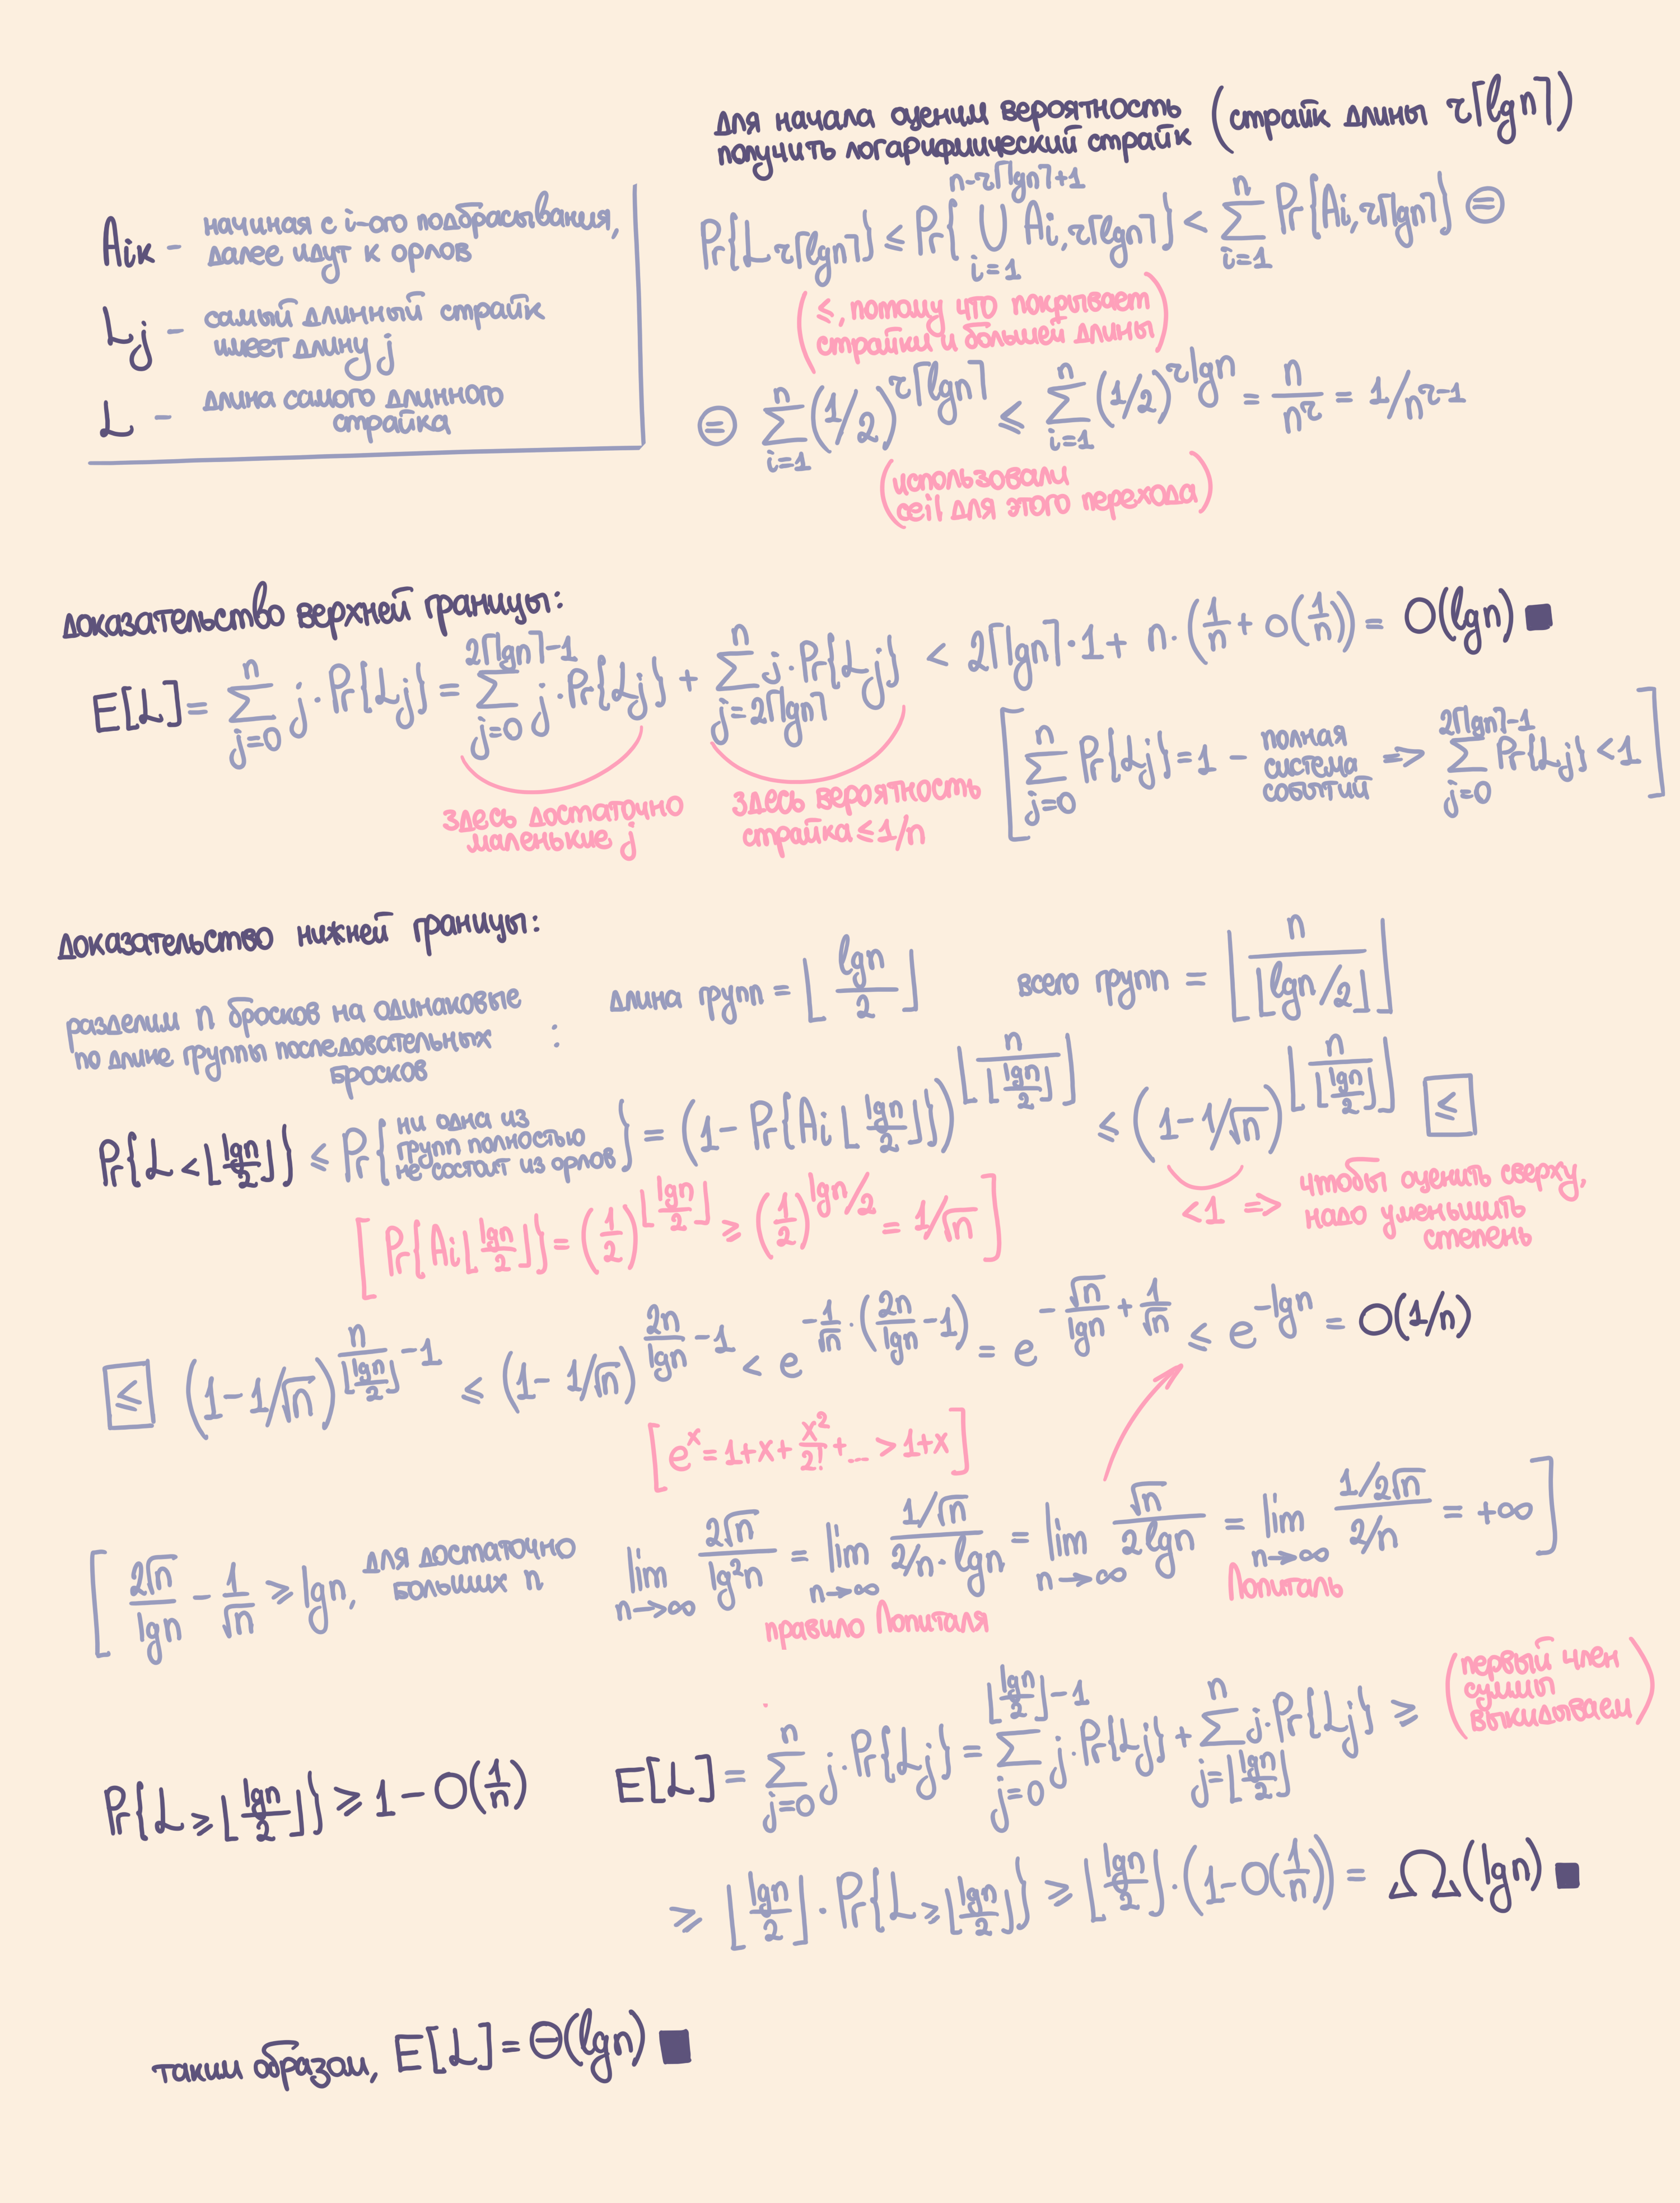 для начала оценим вероятность
получить логарифмический страйк (страйк длины r⌈lgn⌉)
Aik - начиная с i-ого подбрасывания,
далее идут к орлов
Lj - самый длинный страйк
имеет длину j
L - длина самого длинного
страйка
Pr{L r⌈lgn⌉} ≤ Pr{ n-r⌈lgn⌉+1 ∪ i=1 Ai,r⌈lgn⌉} < n Σ i=1 Pr{Ai,r⌈lgn⌉} =
(≤, потому что покрывает
страйки и большей длины)
= n Σ i=1 (1/2)^r⌈lgn⌉ ≤ n Σ i=1 (1/2)^rlgn = n/n^r = 1/n^r-1
(использовали
ceil для этого перехода)
доказательство верхней границы:
E[L] = n Σ j=0 j·Pr{Lj} = 2⌈lgn⌉-1 Σ j=0 j·Pr{Lj} + n Σ j=2⌈lgn⌉ j·Pr{Lj} < 2⌈lgn⌉·1 + n·(1/n + o(1/n)) = O(lgn) ■
здесь достаточно
маленькие j
здесь вероятность
страйка ≤ 1/n
[n Σ j=0 Pr{Lj} = 1 - полная
система
событий => 2⌈lgn⌉-1 Σ j=0 Pr{Lj} < 1]
доказательство нижней границы:
разделим n бросков на одинаковые
по длине группы последовательных
бросков :
длина групп = ⌊lgn/2⌋ всего групп = ⌊n/⌊lgn/2⌋⌋
Pr{L < ⌊lgn/2⌋} ≤ Pr{ни одна из
групп полностью
не состоит из орлов} = (1 - Pr{Ai⌊lgn/2⌋})^⌊n/⌊lgn/2⌋⌋ ≤ (1 - 1/√n)^⌊n/⌊lgn/2⌋⌋ ≤
[Pr{Ai⌊lgn/2⌋} = (1/2)^⌊lgn/2⌋ ≥ (1/2)^lgn/2 = 1/√n]
<1 => чтобы оценить сверху,
надо уменьшить
степень
≤ (1-1/√n)^n/⌊lgn/2⌋-1 ≤ (1-1/√n)^2n/lgn-1 < e^-1/√n·(2n/lgn-1) = e^-√n/lgn+1/√n ≤ e^-lgn = O(1/n)
[e^x = 1+x+x²/2!+... > 1+x]
[2√n/lgn - 1/√n ≥ lgn, для достаточно
больших n
lim n→∞ 2√n/lg²n = lim n→∞ 1/√n / 2/n·lgn = lim n→∞ √n/2lgn = lim n→∞ 1/2√n / 2/n = +∞]
правило Лопиталя
Лопиталь
Pr{L ≥ ⌊lgn/2⌋} ≥ 1 - O(1/n)
E[L] = n Σ j=0 j·Pr{Lj} = ⌊lgn/2⌋-1 Σ j=0 j·Pr{Lj} + n Σ j=⌊lgn/2⌋ j·Pr{Lj} ≥
(первый член
суммы
выкидываем)
≥ ⌊lgn/2⌋·Pr{L ≥ ⌊lgn/2⌋} ≥ ⌊lgn/2⌋·(1-O(1/n)) = Ω(lgn) ■
таким образом, E[L] = Θ(lgn) ■